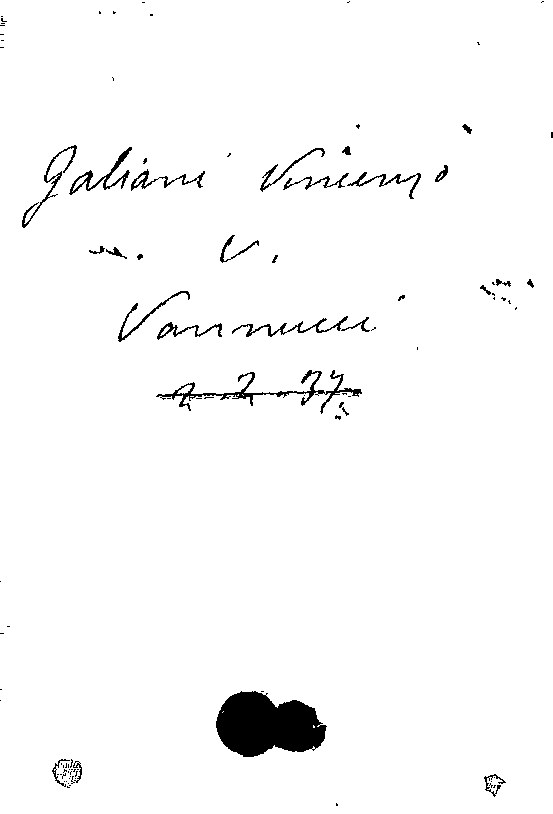 Galiani Vincenzo
V.
Vannucci
2.2.37